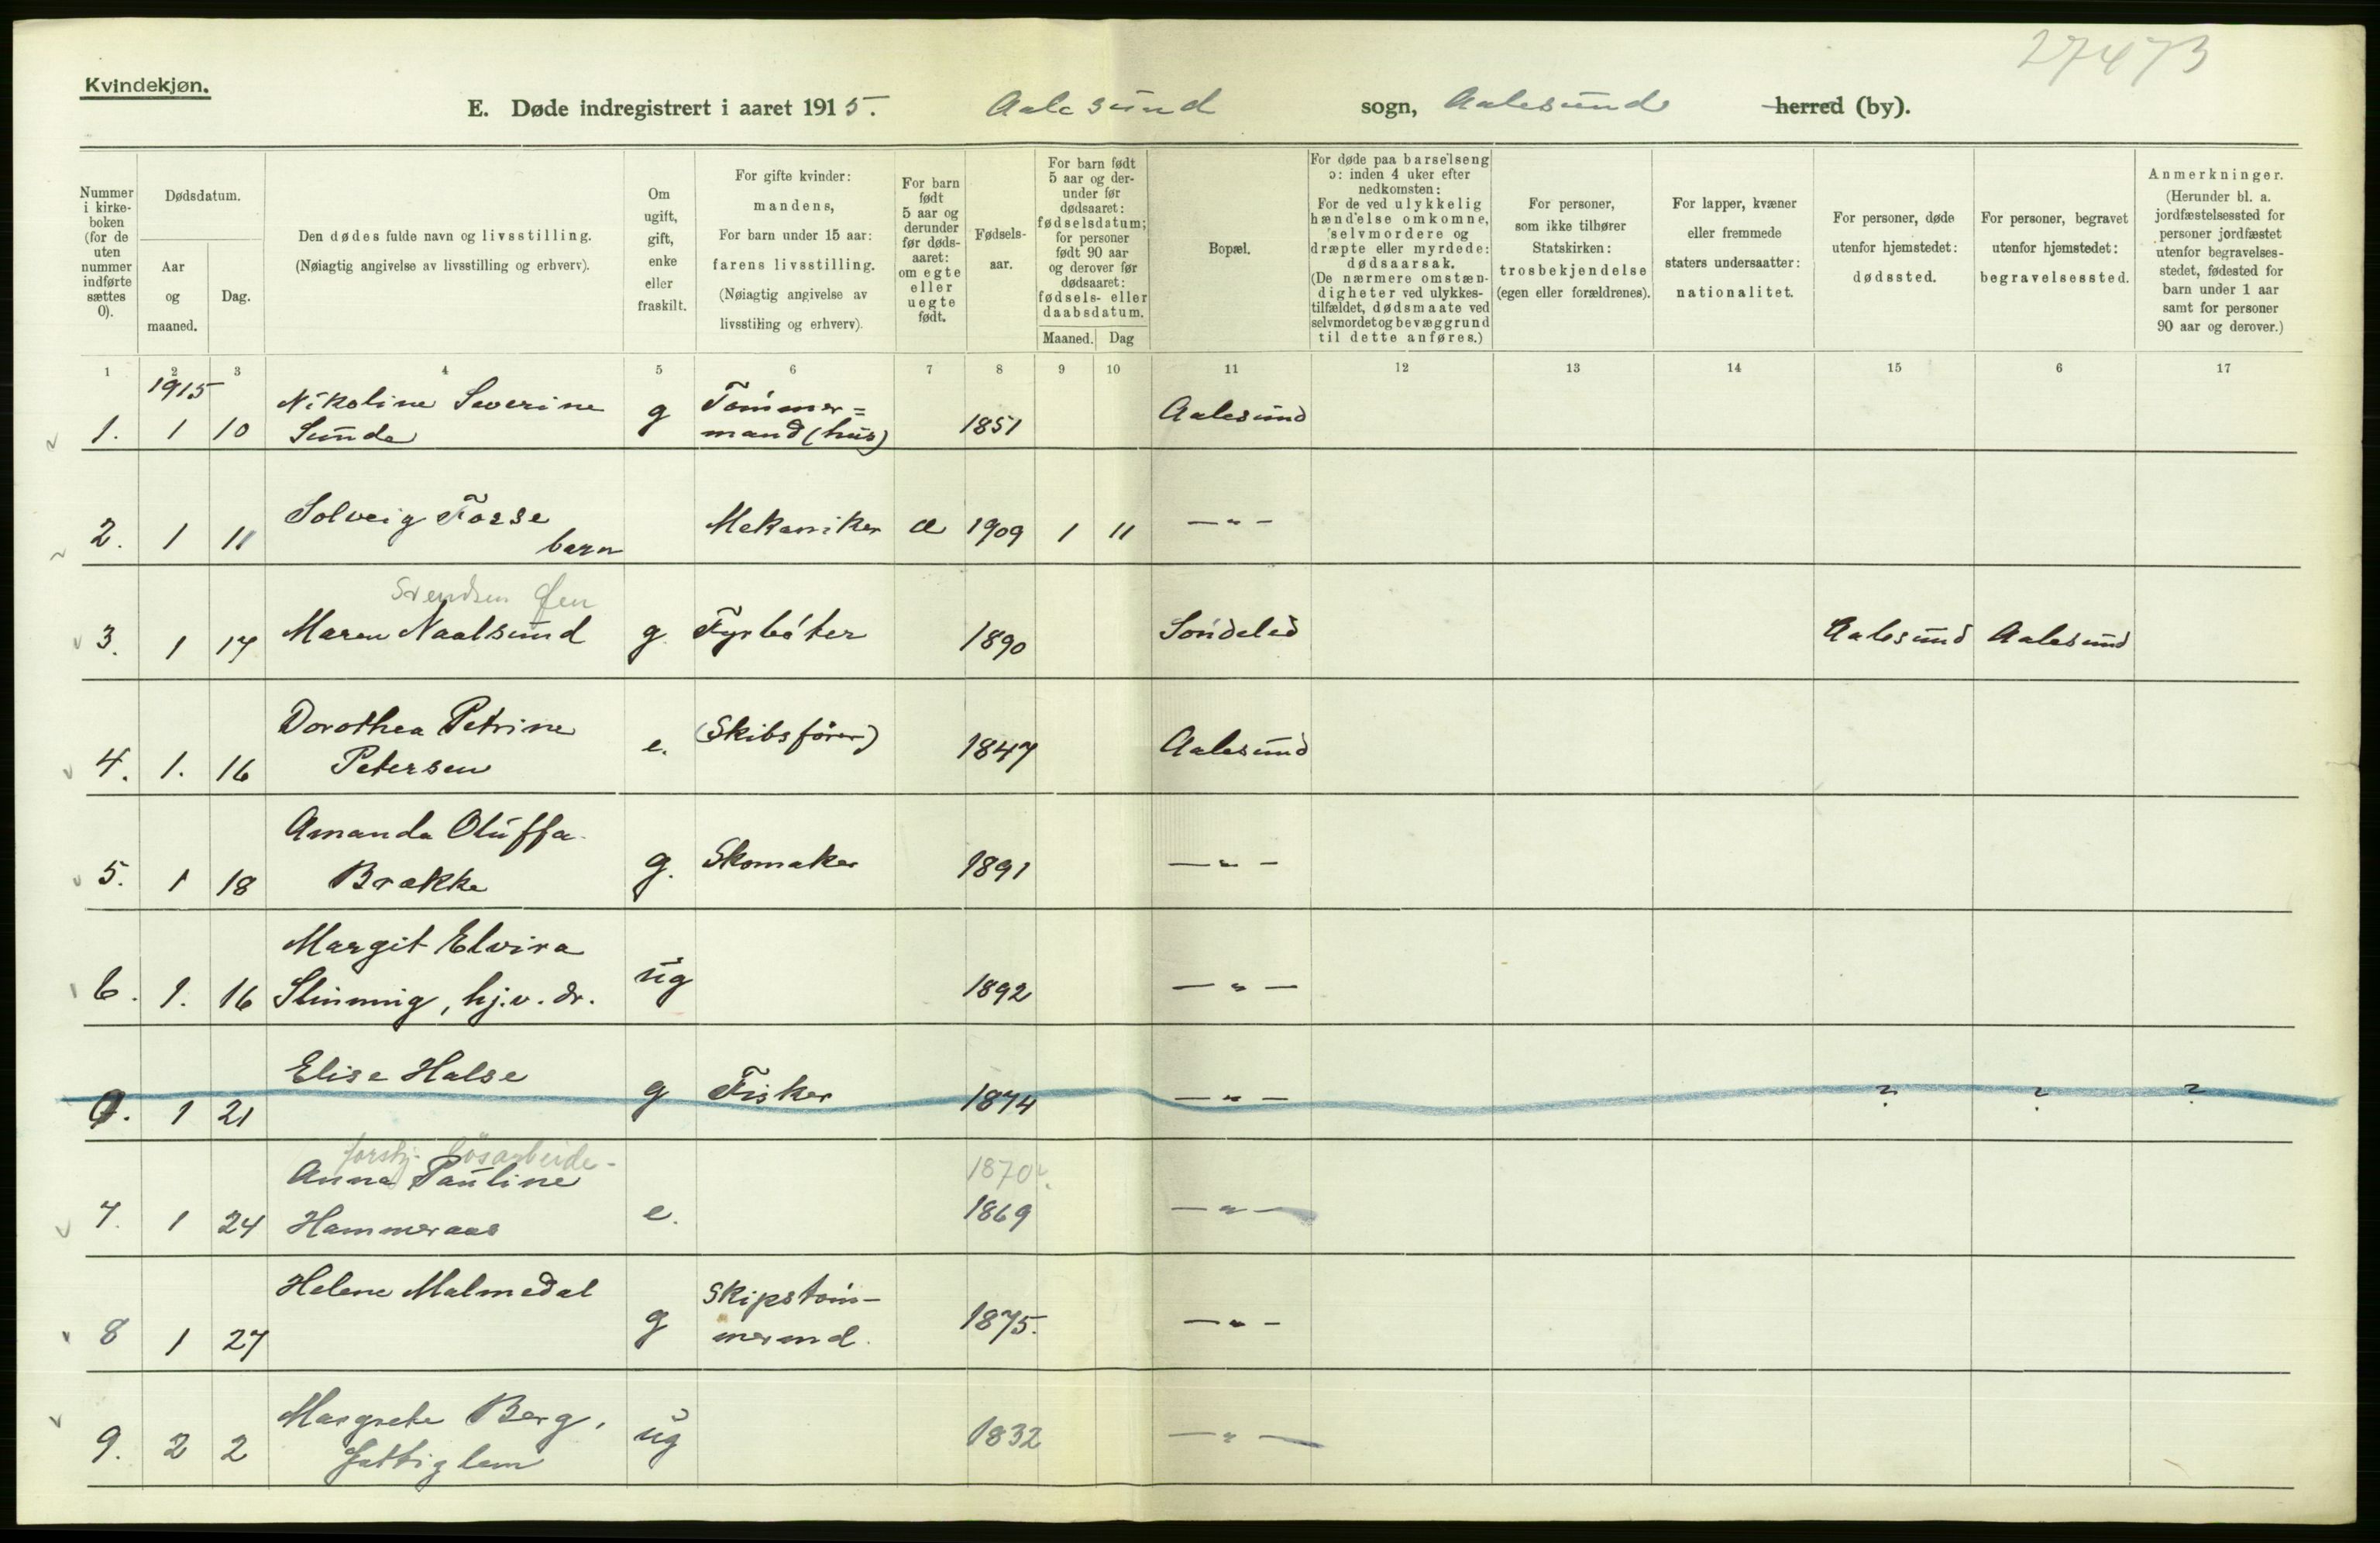 27473
Kvindekjøn.
E. Døde indregistrert i aaret 1915. Aalesund sogn, Aalesund herred (by).
Nummer i kirkeboken (for de uten nummer indførte sættes 0).
Dødsdatum.
Aar og maaned.
Dag.
Den dødes fulde navn og livsstilling.
(Nøiagtig angivelse av livsstilling og erhverv).
Om ugift, gift, enke eller fraskilt.
For gifte kvinder: mandens,
For barn under 15 aar: farens livsstilling.
(Nøiagtig angivelse av livsstilling og erhverv).
For barn født 5 aar og derunder før dødsaaret: om egte eller uegte født.
Fødselsaar.
For barn født 5 aar og derunder før dødsaaret: fødselsdatum; for personer født 90 aar og derover før dødsaaret: fødsels- eller daabsdatum.
Maaned. Dag
Bopæl.
For døde paa barselseng ɔ: inden 4 uker efter nedkomsten:
For de ved ulykkelig hændelse omkomne, selvmordere og dræpte eller myrdede: dødsaarsak.
(De nærmere omstændigheter ved ulykkestilfældet, dødsmaate ved selvmordet og bevæggrund til dette anføres.)
For personer, som ikke tilhører Statskirken: trosbekjendelse (egen eller forældrenes).
For lapper, kvæner eller fremmede staters undersaatter: nationalitet.
For personer, døde utenfor hjemstedet: dødssted.
For personer, begravet utenfor hjemstedet: begravelsessted.
Anmerkninger.
(Herunder bl. a. jordfæstelsessted for personer jordfæstet utenfor begravelsesstedet, fødested for barn under 1 aar samt for personer 90 aar og derover.)
1 2 3 4 5 6 7 8 9 10 11 12 13 14 15 6 17
1915
Nikoline Severine Tømmer= Aalesund
1. 1 10 Sunde g mand (hus) 1851
Solveig Forse
2. 1 11 barn Mekaniker æ 1909 1 11 — " —
Svendsen
3. 1 17 Maren Naalsund g. Fyrbøter 1890 Søndeled Aalesund Aalesund
Dorothea Petrine (Skibsfører)
4. 1. 16 Petersen e. 1847 Aalesund
Amanda Oluffa
5. 1 18 Brække g. Skomaker 1891 — " —
Margit Elvira
6. 1. 16 Slinning, hj.v. dr. ug 1892 — " —
Elise Halse
0. 1 21 g Fisker 1874 — " — ? ? ?
forskj. løsarbeide- 1870?
Anna Pauline
7. 1 24 Hammeraas e. 1869 — " —
Helene Malmedal Skipstøm-
8 1 27 g mermd. 1875. — " —
Margrete Berg,
9. 2 2 Fattiglem ug 1832 — " —